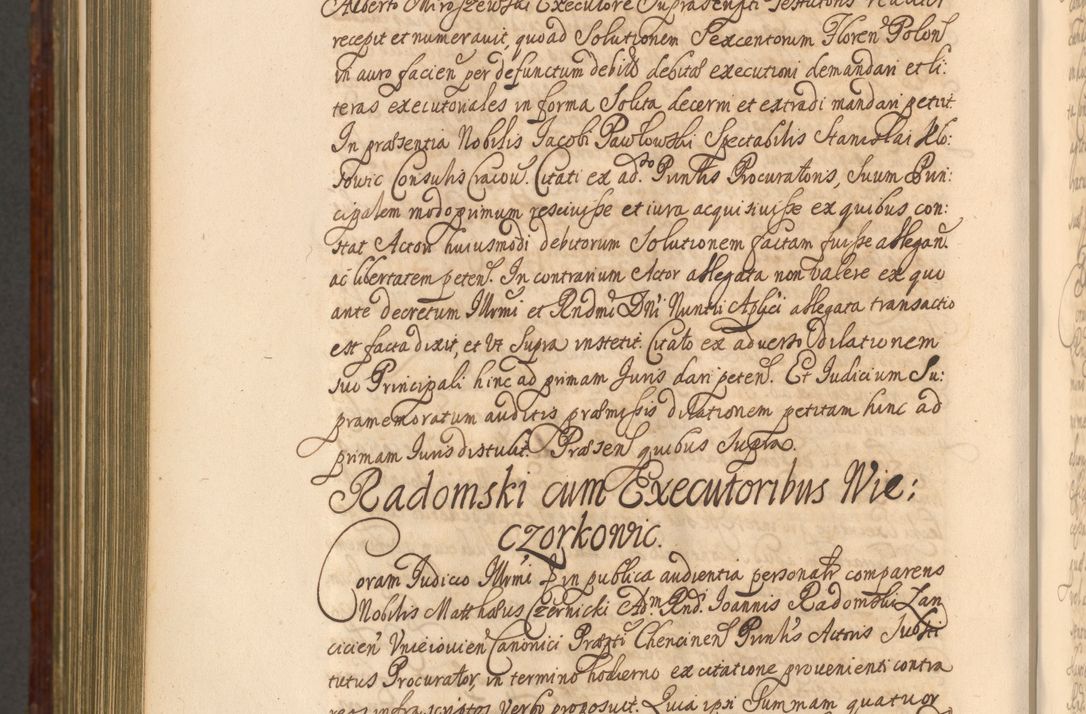 Alberto Miroszewski Executore Suprascripti Testatoris
recepit et numerauit, quoad Solutionem Sexcentorum Floren Polon
in auro facien per defunctum debit debitæ executioni demandari et li:
teras executoriales in forma Solita decerni et extradi mandari petiit
In præsentia Nobilis Jacobi Pawłowski Spectabilis Stanislai Klo:
sowic Consulis Cracou. Citati ex ad.do Puntis Procuratoris, Suum Prin:
cipalem modo primum resciuisse et iura acquisiuisse ex quibus con:
stat Actori huiusmodi debitorum Solutionem factam fuisse allegan
ac libertatem peten. In contrarium Actor allegata non valere ex quo
ante decretum Illrmi et Rndmi Dni Nuntii Aplici allegata transactio
est facta dixit, et vt Supra institit. Citato ex aduerso dilationem
suo Principali hinc ad primam Juris dari peten. Et Judicium Su:
pramemoratum auditis præmissis dilationem petitam hinc ad
primam Juris distulit. Præsen quibus Supra.
Radomski cum Executoribus Wie:
czorkowic.
Coram Judicio Illrmi in publica audientia personalr comparens
Nobilis Matthæus Czernicki Adm Rnd. Joannis Radomski Lan
cicien Vnieiouien Canonici Præpti Chencinen Puntis Actoris Substi
tutus Procurator, in termino hodierno ex citatione provenienti contra
reas infra scriptos Verbo proposuit. Quia ipsi Summam quatuor